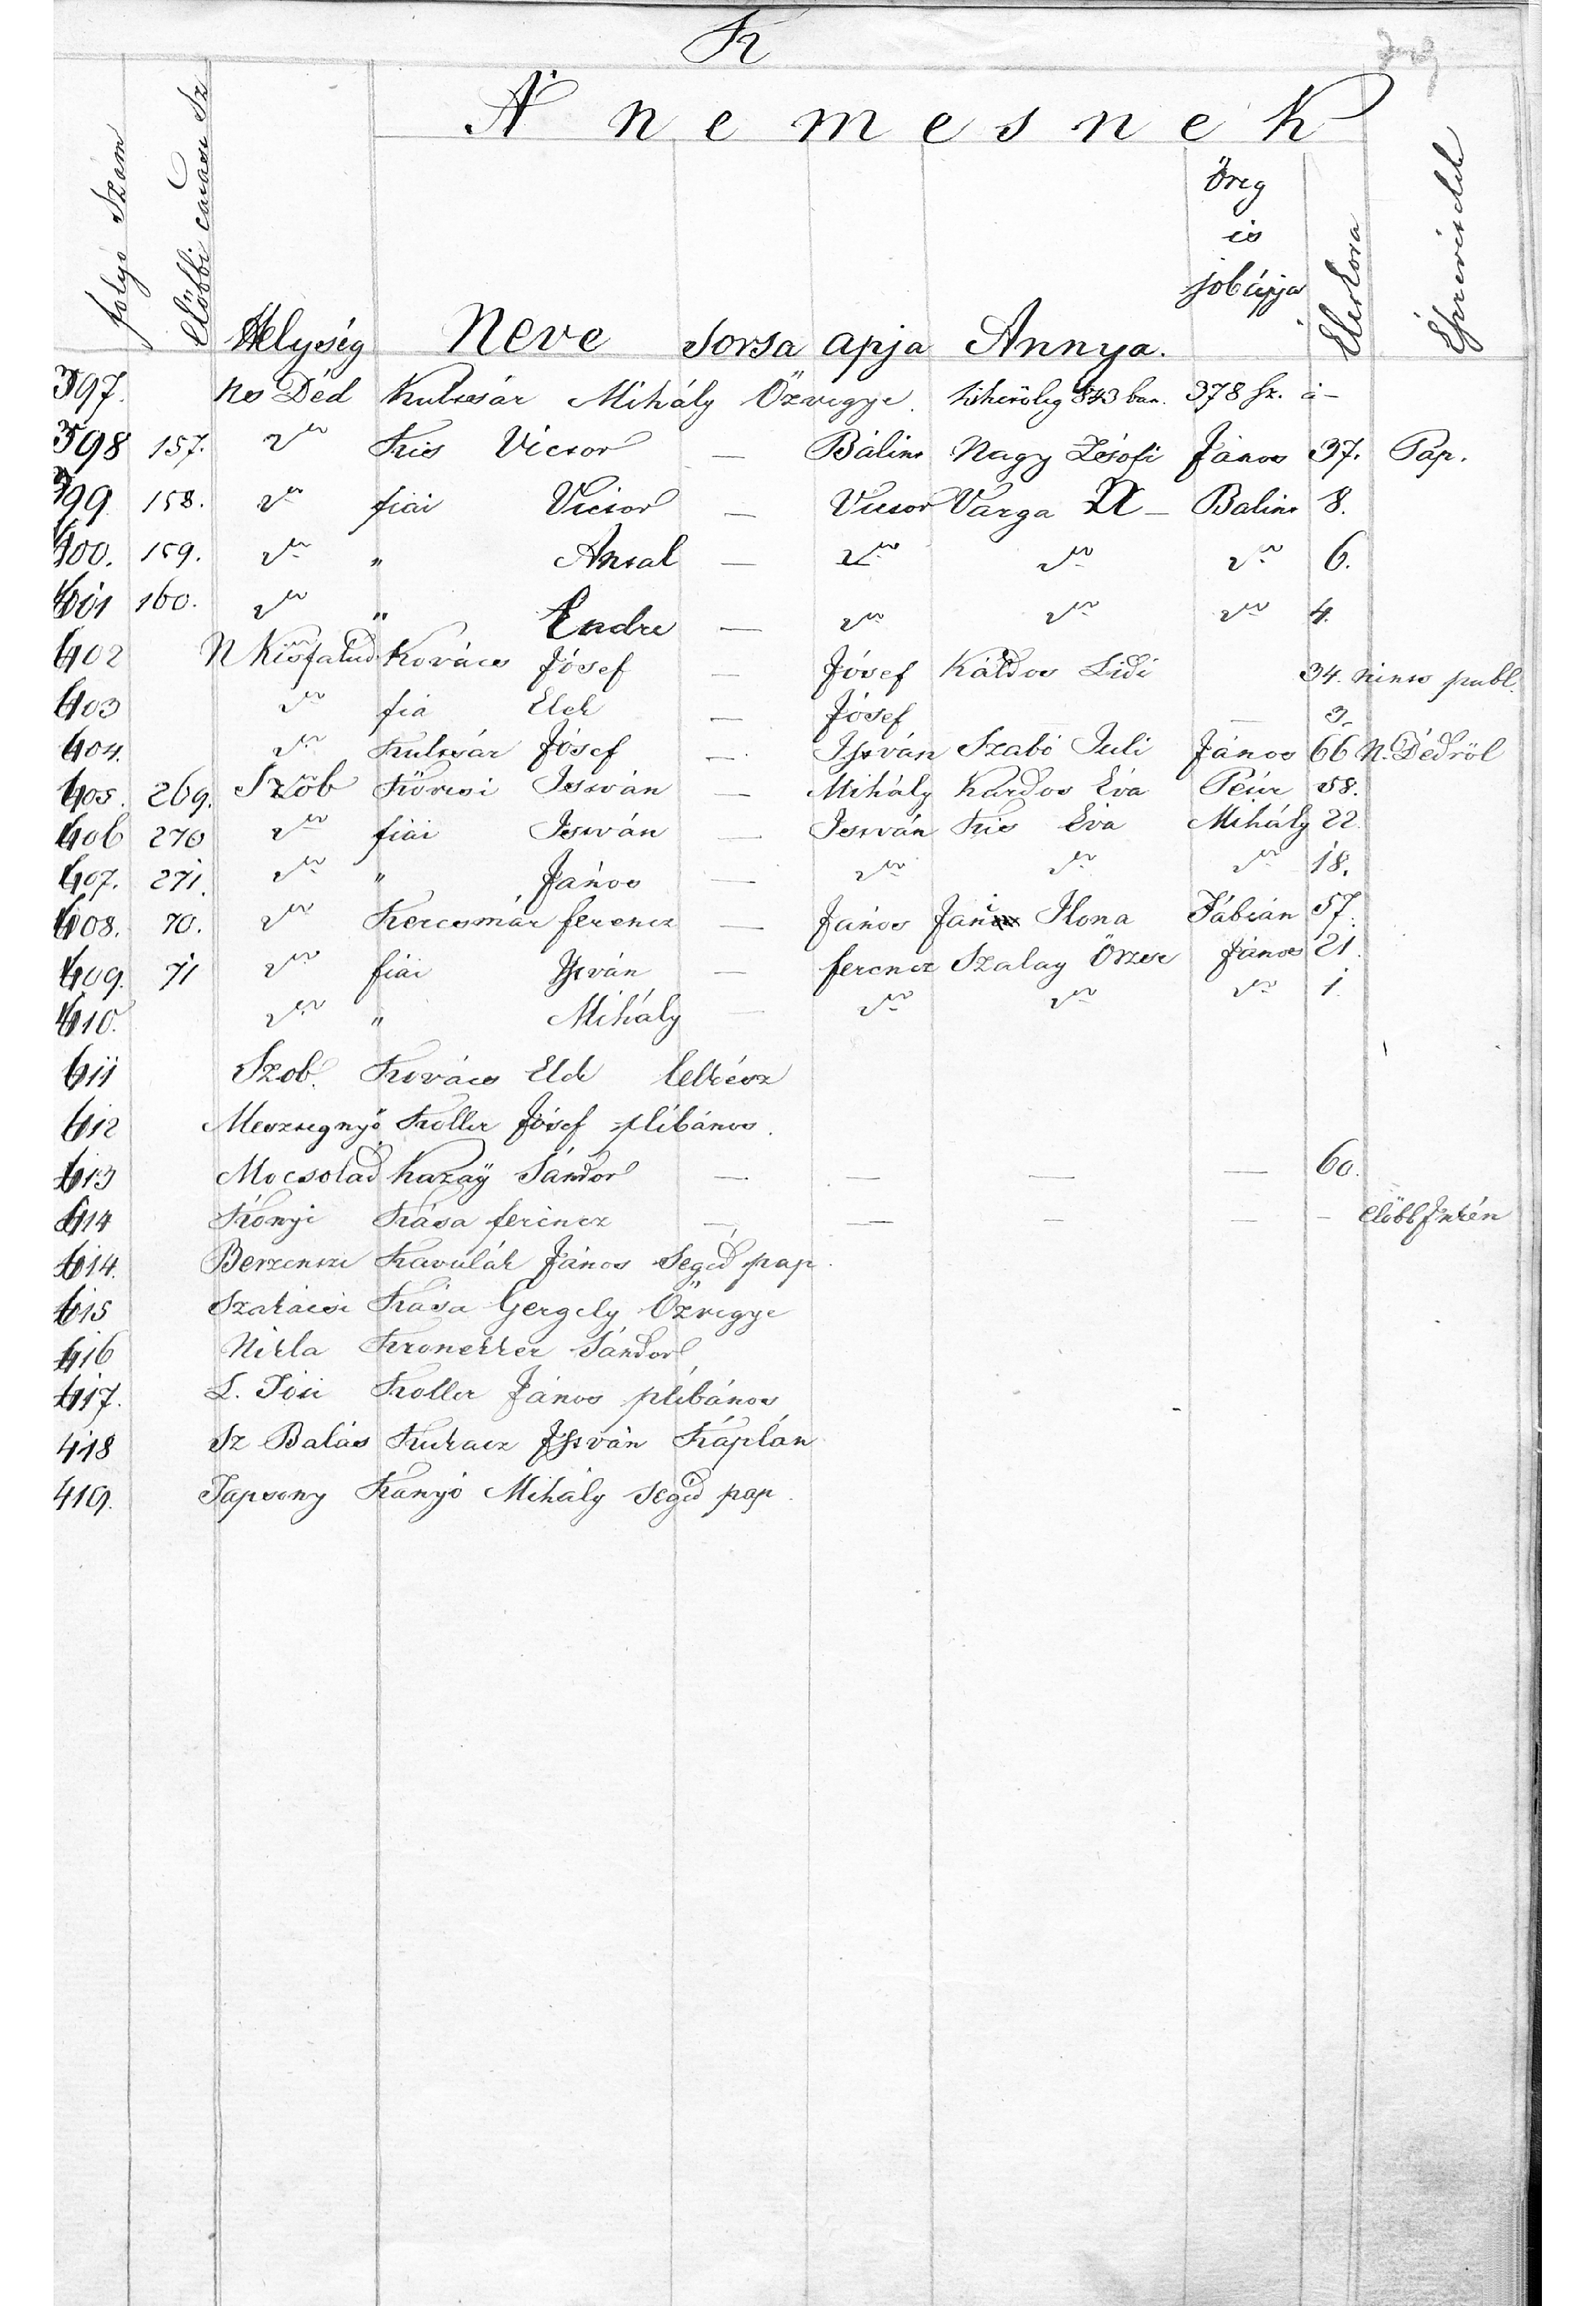 K
A nemesnek
folyó Szám
Előbbi
Helység Neve Sorsa apja Annya. Öreg is jobápja Életkora Észrevétel
397. Ns Déd Kultsár Mihály Özvegye. 843 ban. 378 sz. a -
398 157. do Kis Victor — Bálint Nagy Zsófi János 37. Pap.
399 158. do fiai Victor — Victor Varga N - Balint 8.
400. 159. do " Antal — do do do 6.
401 160. do " Endre — do do do 4.
402 N Kisfalud Kovács Jósef — József Káldos Lidi 34. nincs publ.
403 do fia Elek — József — — 3.
404. do Kultsár Jósef - István Szabó Juli János 66 N. Dédröl
405. 269. Szob Kövesi István — Mihály Kardos Éva Péter 58.
406 270 do fiai István — István Kis Éva Mihály 22.
407. 271. do " János — do do do 18.
408. 70. do Kercsmár ferencz — János Ilona Fábián 57.
409. 71 do fiai István — ferencz Szalay Örzse János 21.
410. do " Mihály — do do do 1.
411 Szob. Kovács Elek lelkész
412 Mesztegnyő Koller József plébános.
413 Mocsolad Kazay Sándor — — — — 60.
414 Kónyi Kása ferencz — — — — - előbb Inkén
414. Berzencze Kavulák János Segéd pap.
415 Szakácsi Kása Gergely Özvegye
416 Nikla Kronekker Sándor
417. Koller János plébános
418 Sz Balás István Káplán
419. Tapsony Kányó Mihály segéd pap.